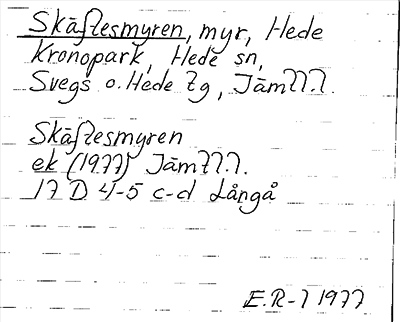 Skäftesmyren, myr, Hede
Kronopark, Hede sn,
Svegs o. Hede tg, Jämtl.l.
Skäftesmyren
ek (1977) Jämtl.l.
17 D 4-5 c-d Långå
E.R-7 1977